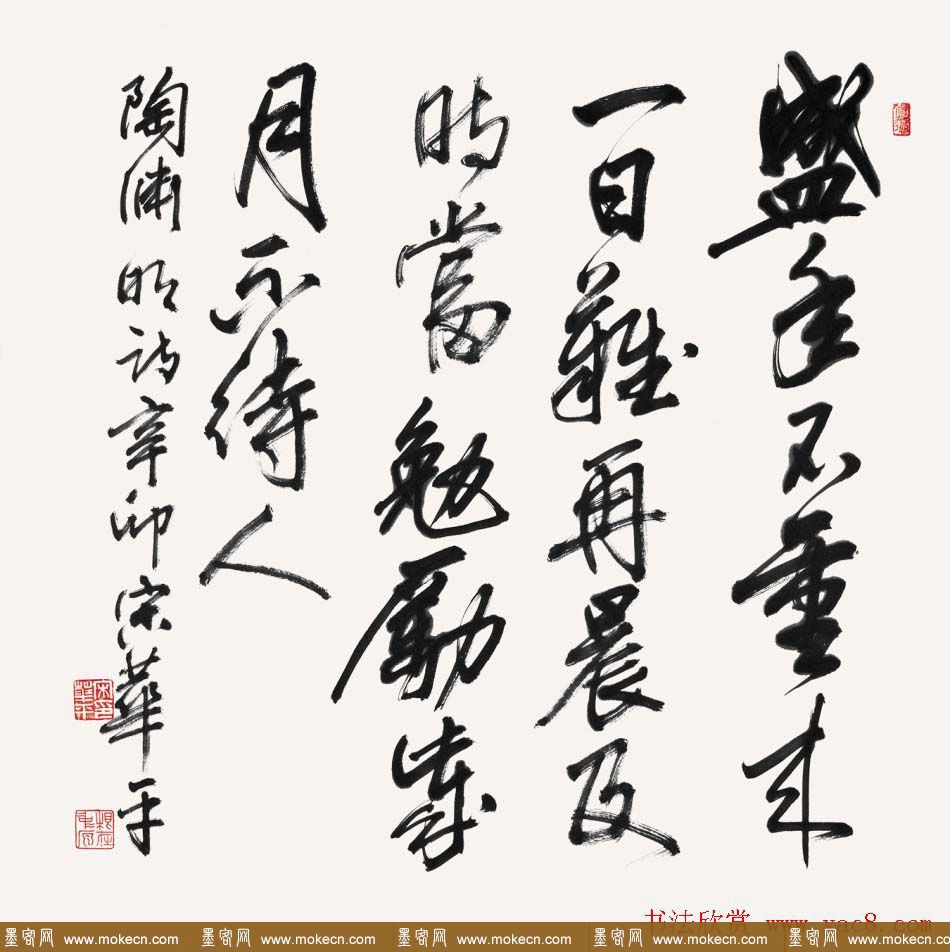 盛年不重来
一日難再晨及
時當勉勵歳
月不待人
陶渊明诗辛卯宋華平
书法欣赏 www.yac8.com
墨客网 www.mokecn.com 墨客网 www.mokecn.com 墨客网 www.mokecn.com 墨客网 www.mokecn.com 墨客网 www.mokecn.com